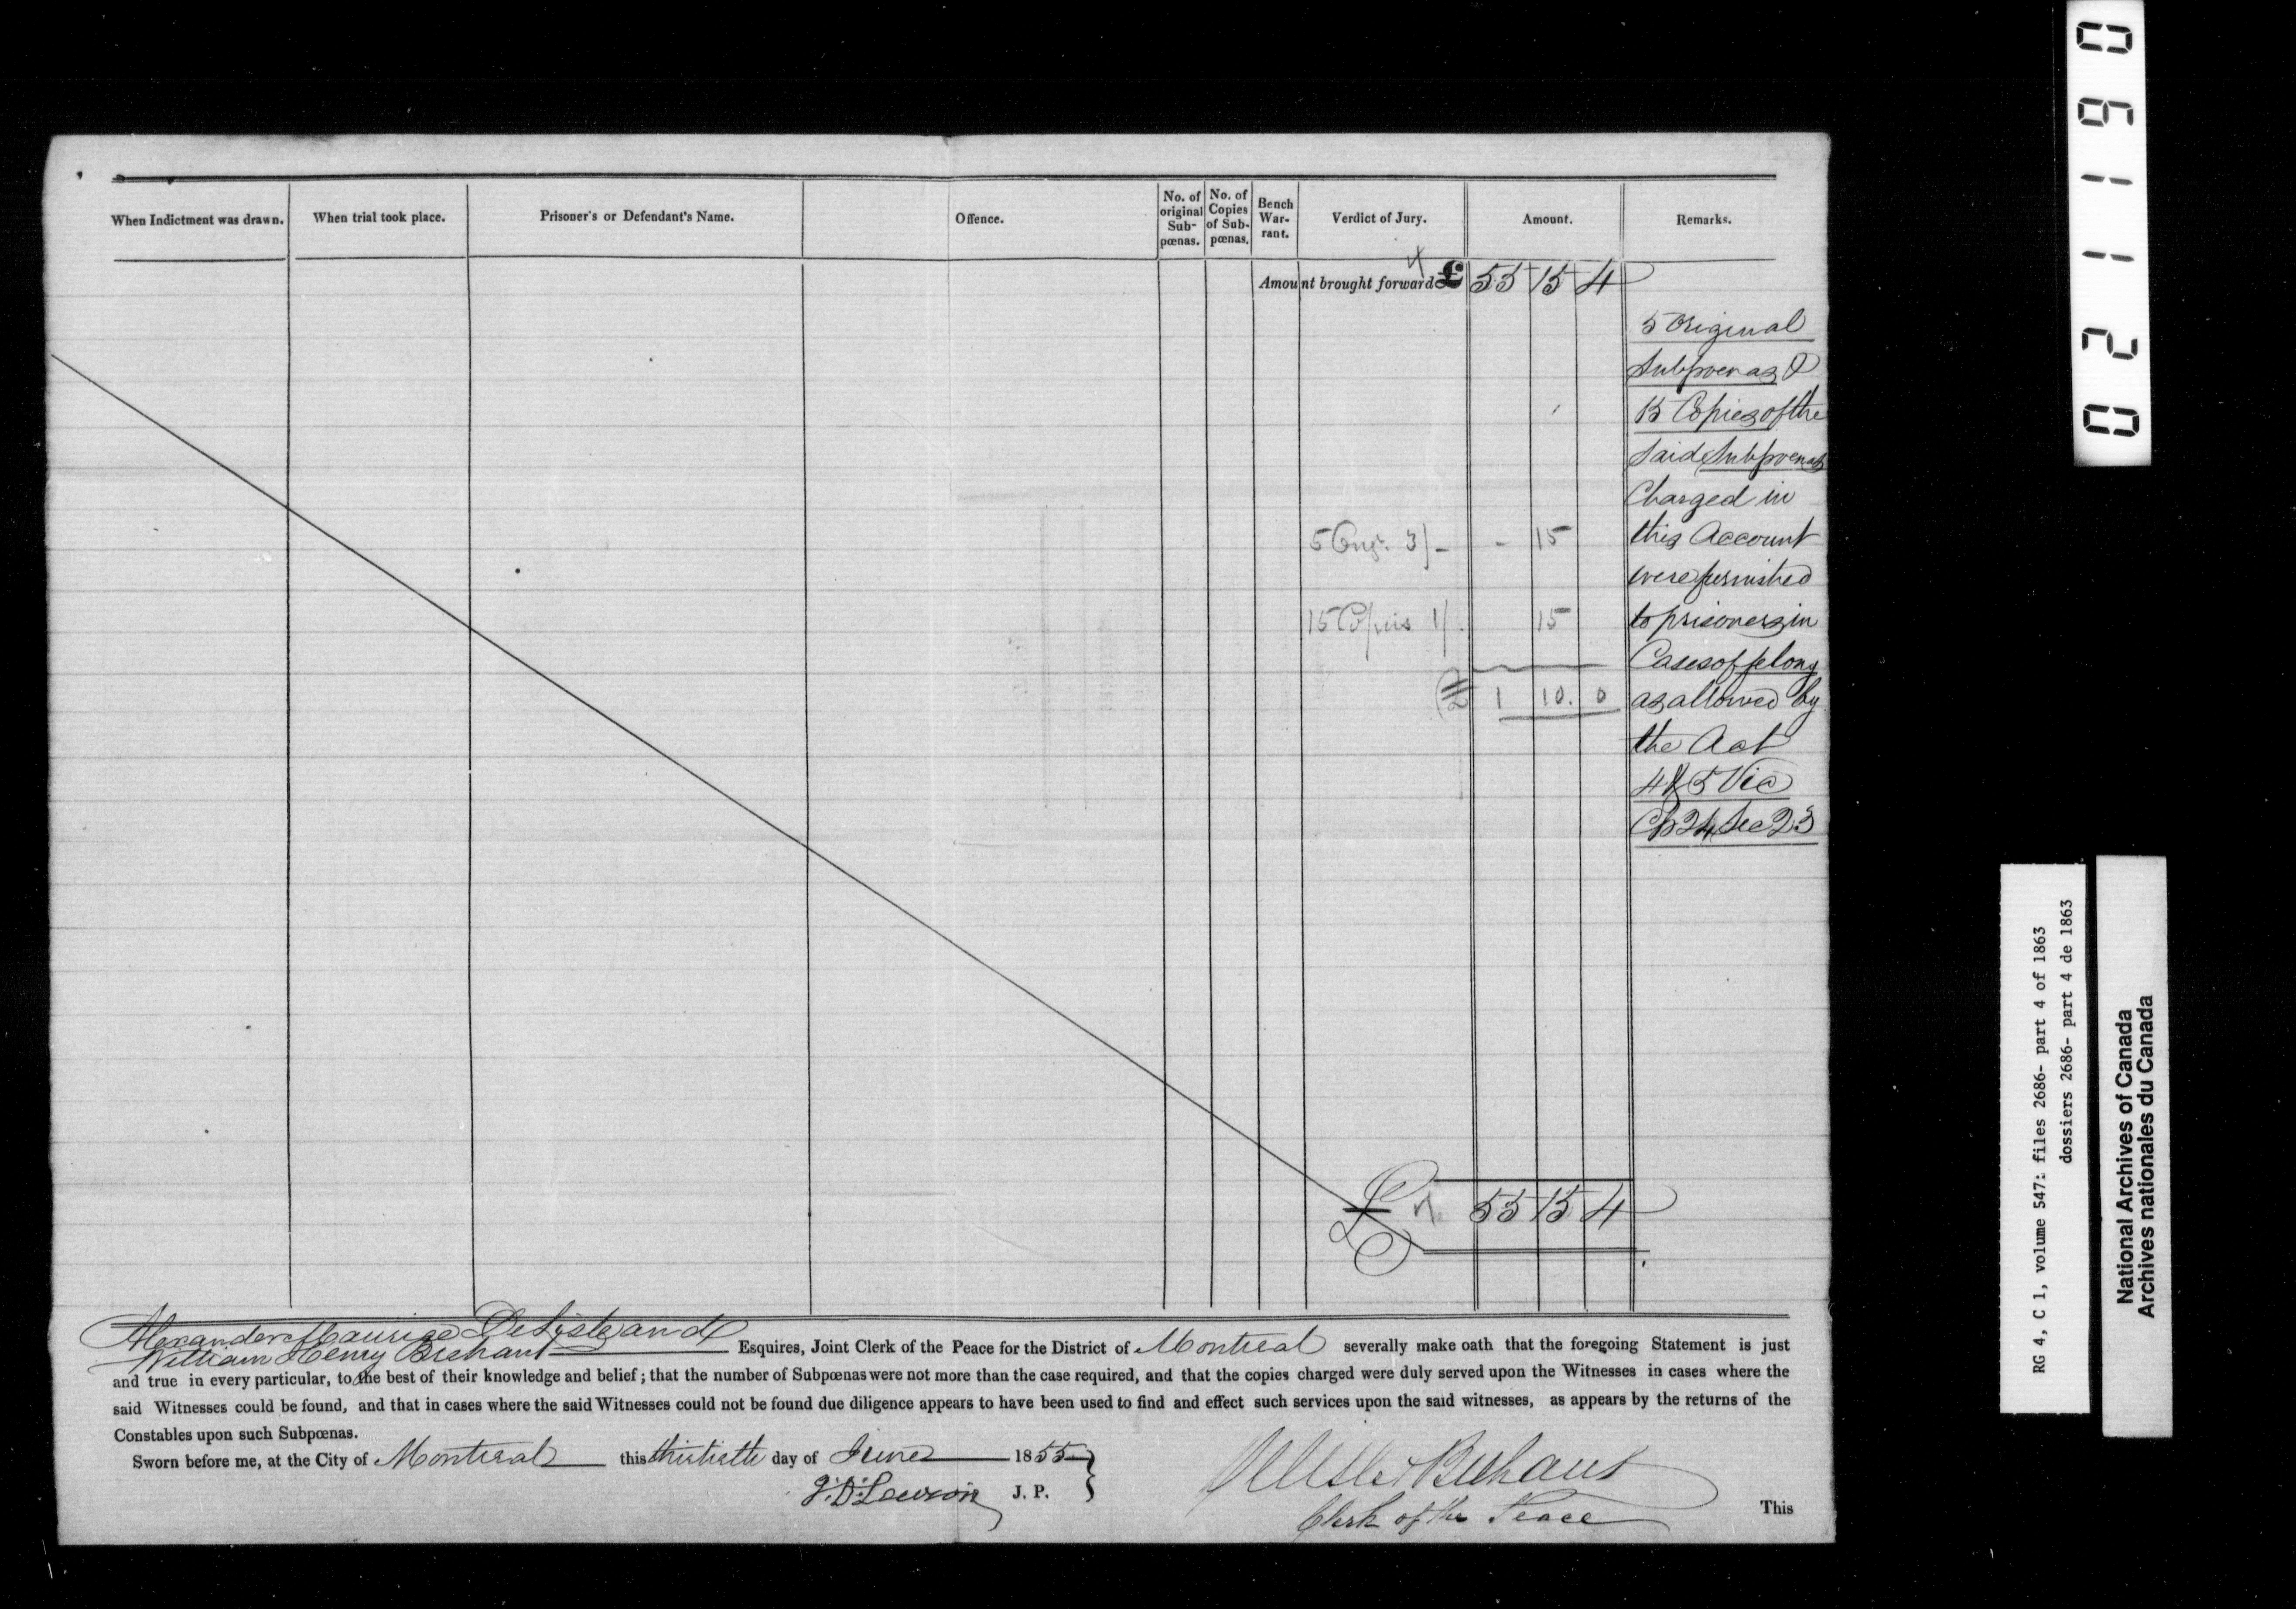 When Indictment was drawn.
When trial took place.
Prisoner's or Defendant's Name.
Offence.
No. of original Sub-pœnas.
No. of Copies of Sub-pœnas.
Bench War-rant.
Verdict of Jury.
Amount.
Remarks.
Amount brought forward £ 55 15 4
5 Original
Subpoenas &
15 Copies of the
said Subpoenas
Charged in
this Account
were furnished
to prisoners in
Cases of felony
as allowed by
the Act
4 & 5 Vic
Cp 24 Sec 23
5 3/- - 15
15 Copies 1/. 15
£ 1 10. 0
£ 55 15 4
Alexander Maurice DeLisle and
William Henry Brehaut Esquires, Joint Clerk of the Peace for the District of Montreal severally make oath that the foregoing Statement is just
and true in every particular, to the best of their knowledge and belief; that the number of Subpœnas were not more than the case required, and that the copies charged were duly served upon the Witnesses in cases where the
said Witnesses could be found, and that in cases where the said Witnesses could not be found due diligence appears to have been used to find and effect such services upon the said witnesses, as appears by the returns of the
Constables upon such Subpœnas.
Sworn before me, at the City of Montreal this thirtieth day of June 1855
J. P.
Delisle & Brehaut
Clerk of the Peace
This
021190
RG 4, C 1, volume 547: files 2686- part 4 of 1863
dossiers 2686- part 4 de 1863
National Archives of Canada
Archives nationales du Canada